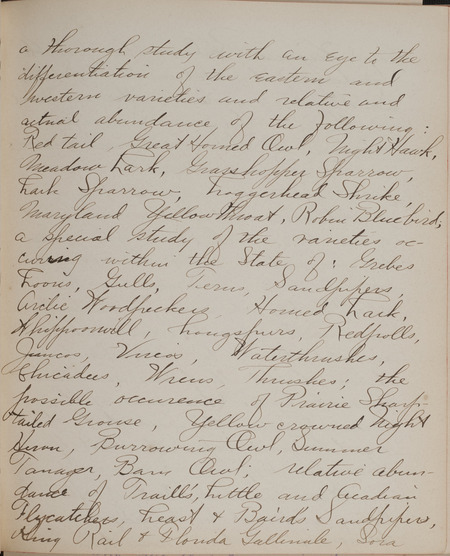 a thorough study with an eye to the
differentiation of the Eastern and
western varieties and relative and
actual abundance of the following:
Red tail, Great Horned Owl, Night Hawk,
Meadow Lark, Grasshopper Sparrow,
Lark Sparrow, Loggerhead Shrike,
Maryland Yellow throat, Robin Bluebird;
a special study of the varieties oc-
curing within the State of: Grebes
Loons, Gulls, Terns, Sandpipers
Arctic Woodpeckers, Horned Lark,
Whippoorwill Longspurs, Redpolls,
Juncos, Vireos, Waterthrushes,
Chicadees, Wrens, Thrushes; the
possible occurence of Prairie Sharp-
tailed Grouse, Yellow crowned Night
Heron, Burrowing Owl, Summer
Tanager, Barn Owl; relative abun-
dance of Traill's, Little and Acadian
Flycatchers, Least & Baird's Sandpipers,
King Rail & Florida Gallinule, Sora